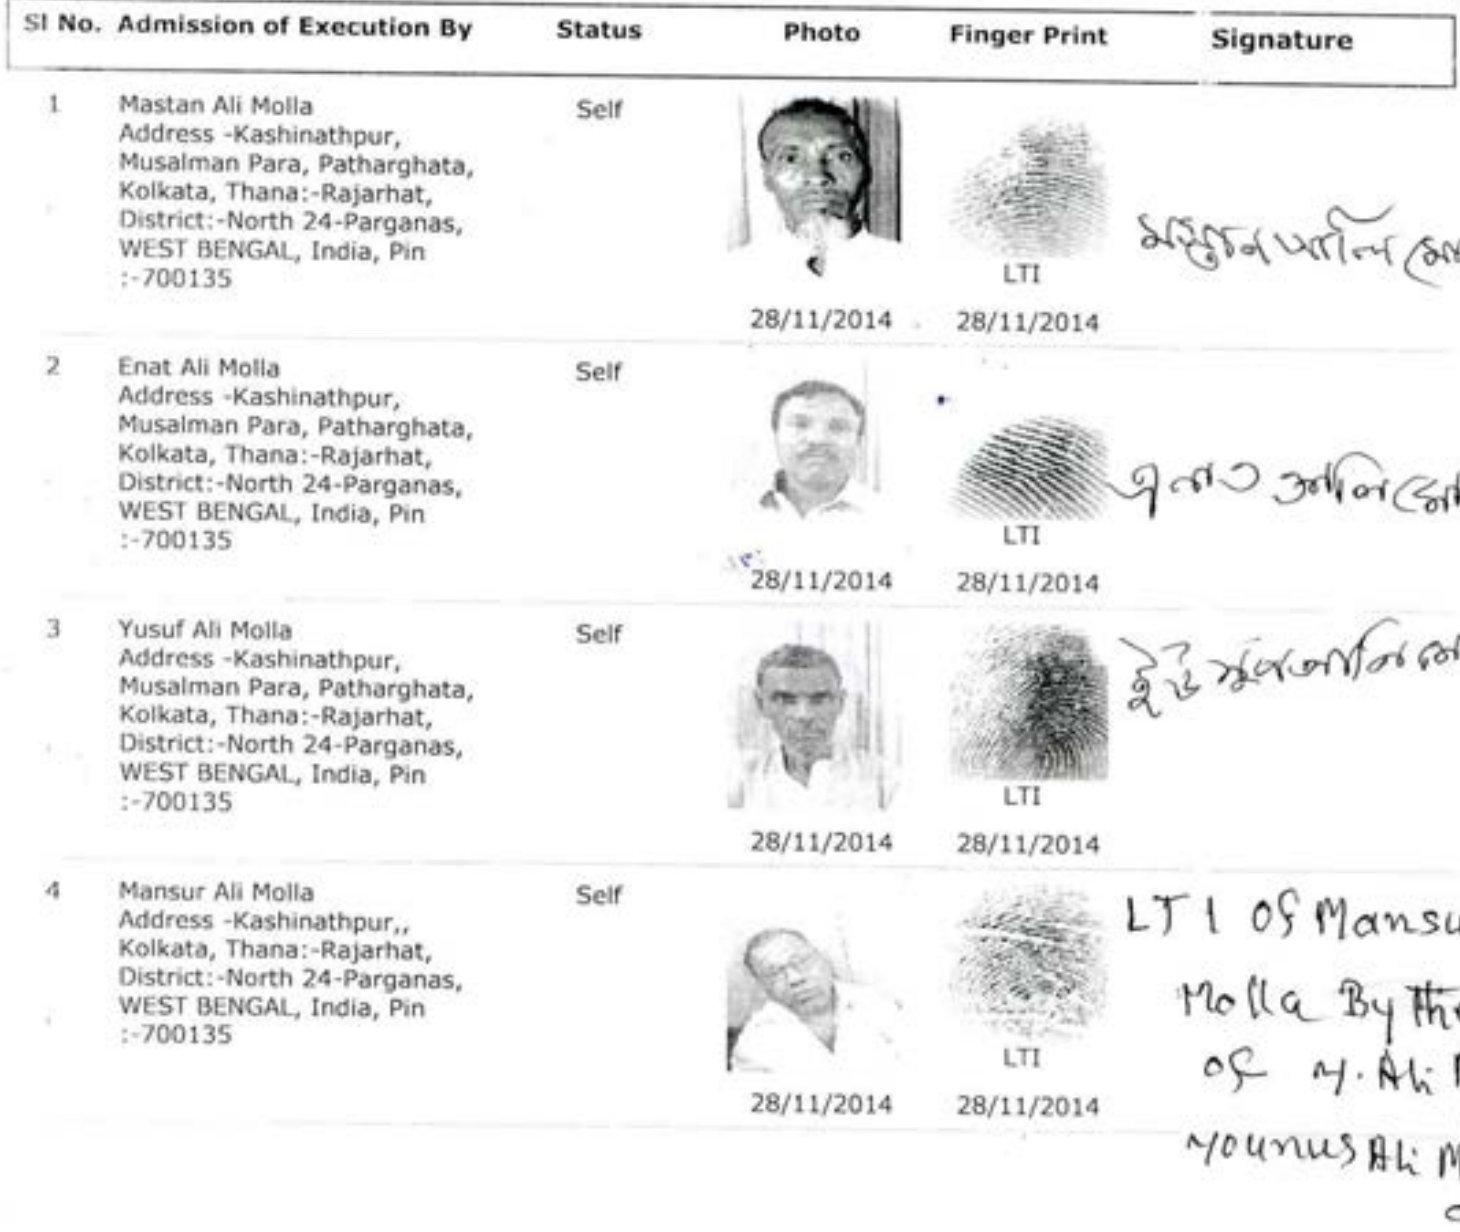 Sl No. Admission of Execution By Status Photo Finger Print Signature
1 Mastan Ali Molla Self
Address -Kashinathpur,
Musalman Para, Patharghata,
Kolkata, Thana:-Rajarhat,
District:-North 24-Parganas,
WEST BENGAL, India, Pin
:-700135
LTI
28/11/2014 28/11/2014
আলি
2 Enat Ali Molla Self
Address -Kashinathpur,
Musalman Para, Patharghata,
Kolkata, Thana:-Rajarhat,
District:-North 24-Parganas,
WEST BENGAL, India, Pin
:-700135
LTI
28/11/2014 28/11/2014
এনাত আলি
3 Yusuf Ali Molla Self
Address -Kashinathpur,
Musalman Para, Patharghata,
Kolkata, Thana:-Rajarhat,
District:-North 24-Parganas,
WEST BENGAL, India, Pin
:-700135
LTI
28/11/2014 28/11/2014
4 Mansur Ali Molla Self
Address -Kashinathpur,,
Kolkata, Thana:-Rajarhat,
District:-North 24-Parganas,
WEST BENGAL, India, Pin
:-700135
LTI
28/11/2014 28/11/2014
LTI of Mansu
Molla By the
of Y. Ali
Younus Ali M